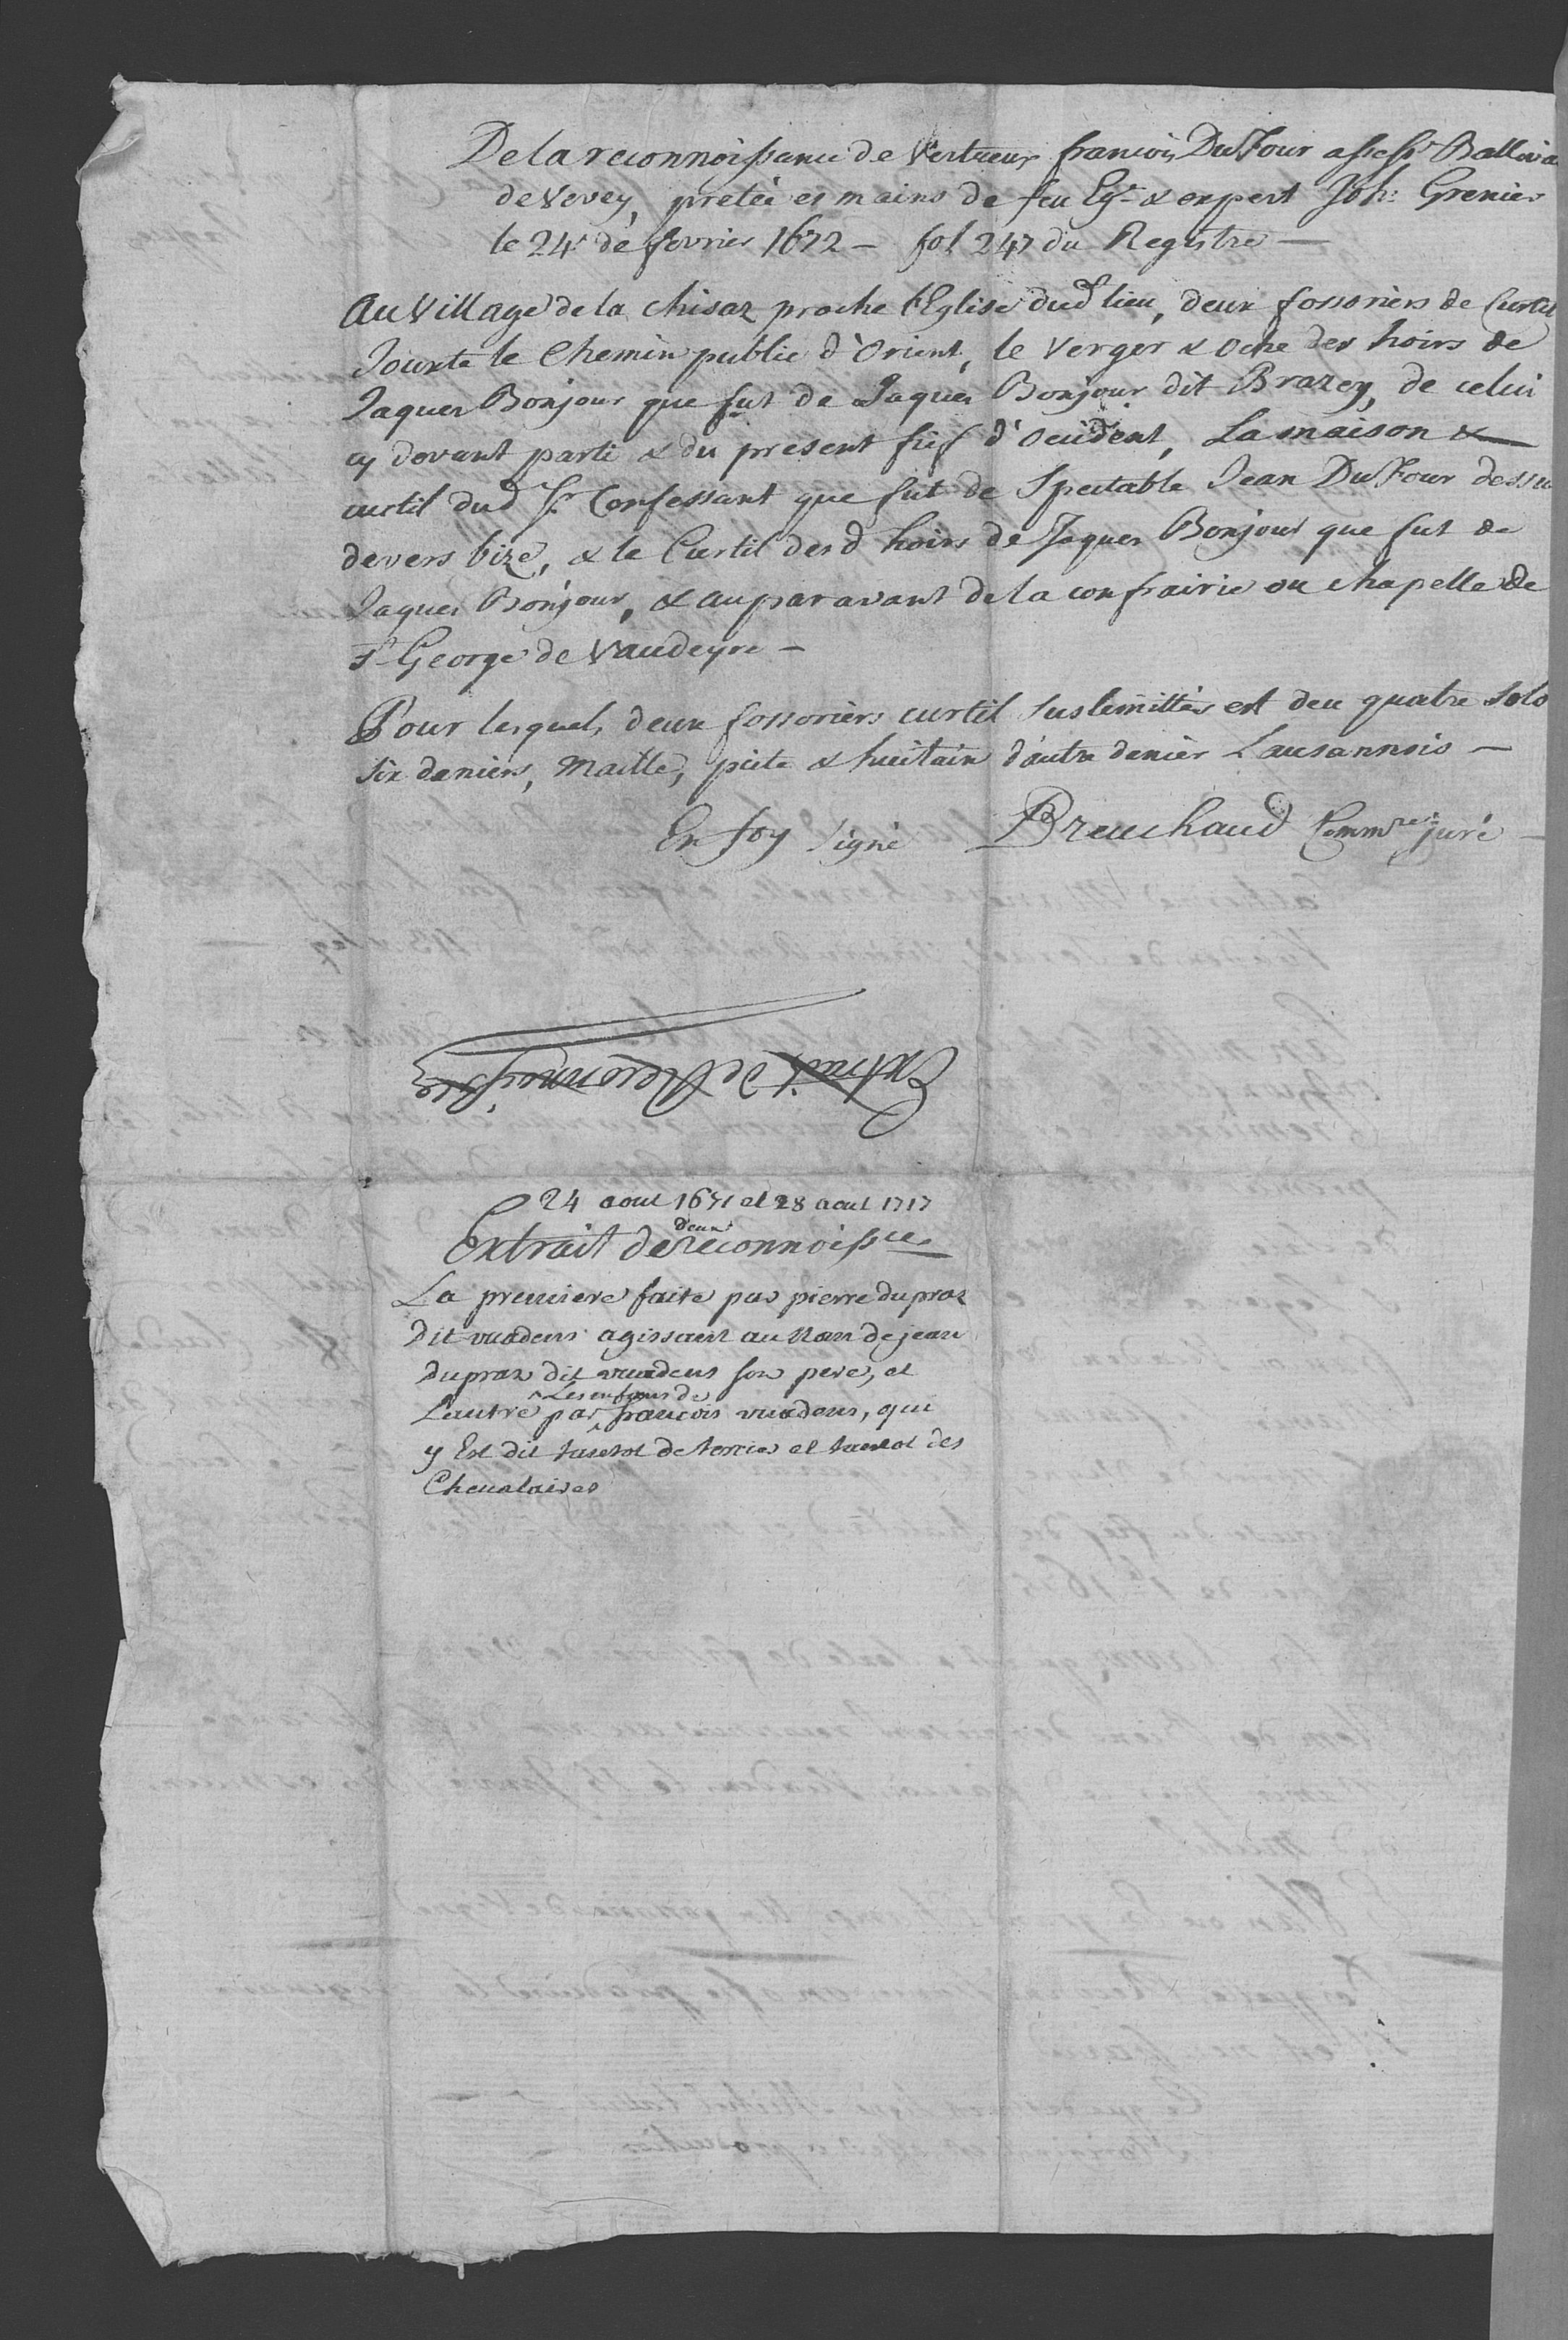 De la reconnoissance de Vertueux francois DuFour assessr Balliva
de Vevey, pretée es mains de feu Egr. & expert Joh: Grenier
le 24e de fevrier 1672 – fol 247 du Registre —
Au Village de la chisaz proche l'Eglise dud lieu, deux fossoriers de Curtil
Jouxte le Chemin public d'Orient, le verger & oche des hoirs de
Jaques Bonjour que fut de Jaques Bonjour dit Brazey, de celui
cy devant parti & du present fief d'Occident, La maison &
curtil dud Sr. Confessant que fut de Spectable Jean DuFour dessu
devers bize, & le Curtil des d hoirs de Jaques Bonjour que fut de
Jaques Bonjour, & auparavant de la confrairie ou chapelle de
St George de Vaudeyre –
Pour lesquels deux fossoriers curtil suslimittés est deu quatre sols
six deniers, maille, pite & huitain d'autre denier Lausannois —
En foy signé Breuchaud Commre juré —
Extrait de Reconnoisce
24 aout 1671 et 28 aout 1717
Extrait de deux reconnoissces
La premiere faite par pierre dupraz
Dit vuadens agissant au Nom de jean
dupraz dit vuadens son pere, et
L'autre par les enfans de francois vuadens, qui
y Est dit de et des
Chevalaires